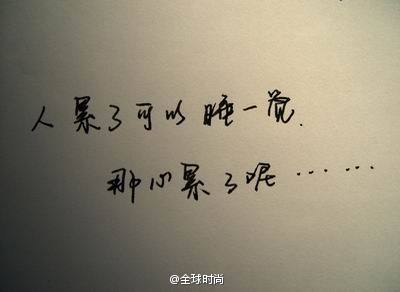 人累了可以睡一觉.
那心累了呢……
@全球时尚